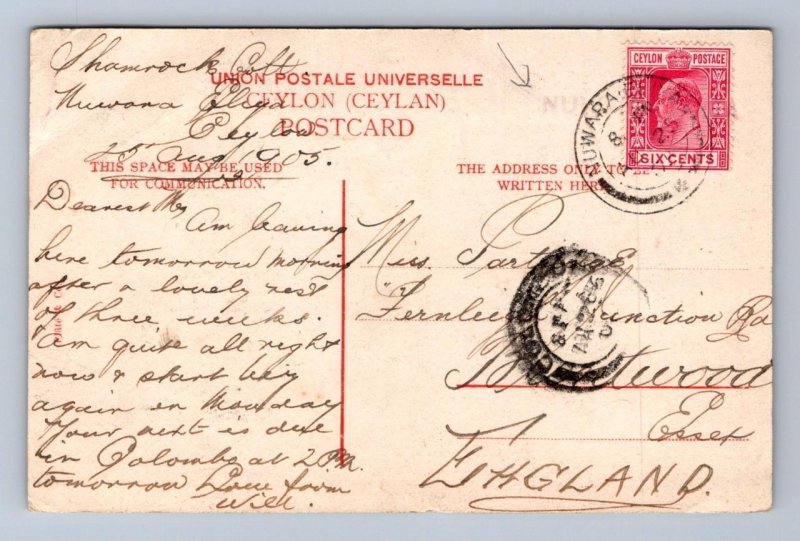 Shamrock Cott
Nuwara Eliya
Ceylon
25 Aug 1905.
UNION POSTALE UNIVERSELLE
CEYLON (CEYLAN)
POSTCARD
THIS SPACE MAY BE USED
FOR COMMUNICATION.
THE ADDRESS ONLY TO BE
WRITTEN HERE
CEYLON POSTAGE
SIX CENTS
NUWARA
Dearest
Am leaving
here tomorrow morning
after a lovely rest
of three weeks.
Am quite all right
now & start
again on Monday
Your next is due
in Colombo at 2 PM
tomorrow Love from
Will.
Miss. Partridge
Fernlea Junction Rd
Brentwood
Essex
ENGLAND.